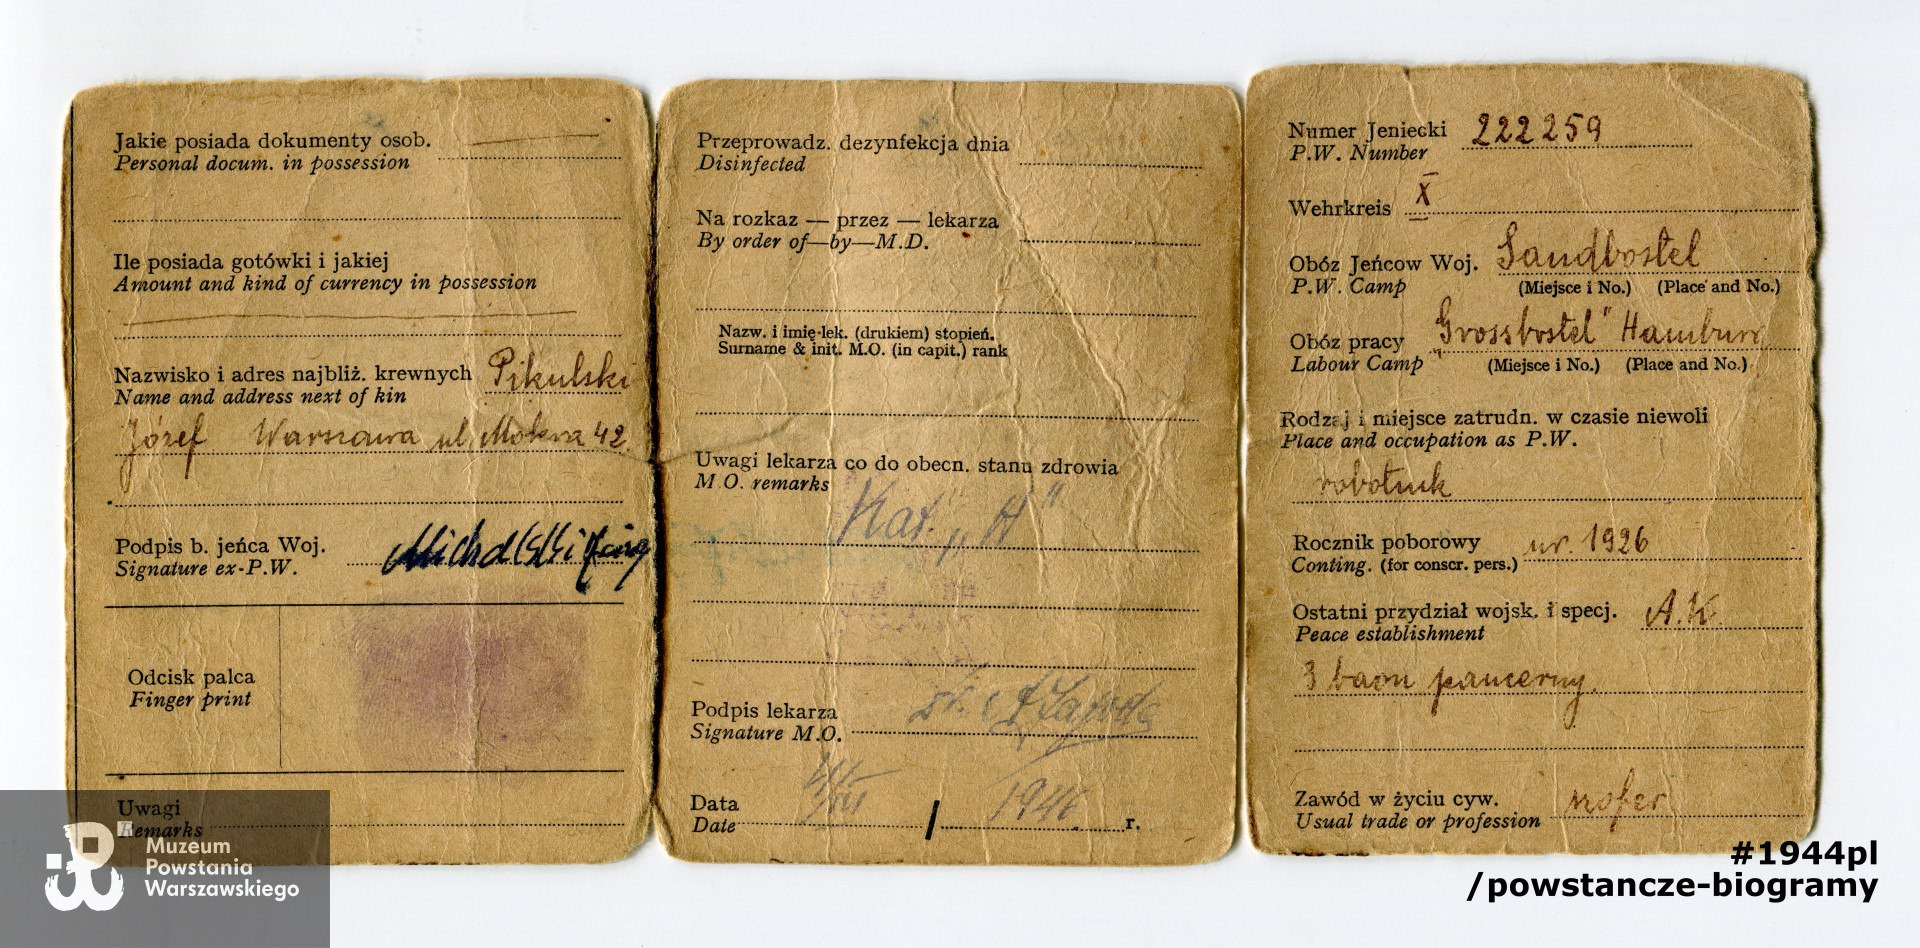 Jakie posiada dokumenty osob.
Personal docum. in possession
Ile posiada gotówki i jakiej
Amount and kind of currency in possession
Nazwisko i adres najbliż. krewnych Pikulski
Name and address next of kin
Józef Warszawa ul. Mokra 42
Podpis b. jeńca Woj.
Signature ex-P.W.
Odcisk palca
Finger print
Uwagi
Remarks
Przeprowadz. dezynfekcja dnia
Disinfected
Na rozkaz — przez — lekarza
By order of—by—M.D.
Nazw. i imię lek. (drukiem) stopień.
Surname & init. M.O. (in capit.) rank
Uwagi lekarza co do obecn. stanu zdrowia
M.O. remarks
Kat. „A"
Podpis lekarza
Signature M.O.
Data / 1946 r.
Date
Numer Jeniecki 222259
P.W. Number
Wehrkreis X
Obóz Jeńcow Woj. Sandbostel
P.W. Camp (Miejsce i No.) (Place and No.)
Obóz pracy „Grossbostel" Hamburg
Labour Camp (Miejsce i No.) (Place and No.)
Rodzaj i miejsce zatrudn. w czasie niewoli
Place and occupation as P.W.
robotnik
Rocznik poborowy ur. 1926
Conting. (for conscr. pers.)
Ostatni przydział wojsk. i specj. A.K.
Peace establishment
3 baon pancerny.
Zawód w życiu cyw. szofer
Usual trade or profession
Muzeum
Powstania
Warszawskiego
#1944pl
/powstancze-biogramy